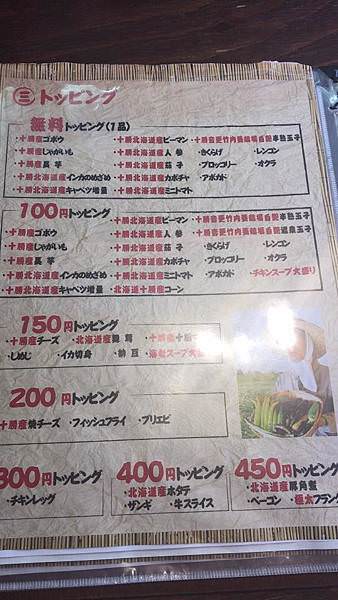 三 トッピング
無料トッピング(1品)
・十勝産ゴボウ ・十勝北海道産ピーマン ・十勝音更竹内養鶏場 半熟玉子
・十勝産じゃがいも ・十勝北海道産人 参 ・きくらげ ・レンコン
・十勝産長 芋 ・十勝北海道産茄 子 ・ブロッコリー ・オクラ
・十勝北海道産インカのめざめ ・十勝北海道産カボチャ ・アボカド
・十勝北海道産キャベツ増量 ・十勝北海道産ミニトマト
100円トッピング
・十勝産ゴボウ ・十勝北海道産ピーマン ・十勝音更竹内養鶏場 温泉玉子
・十勝産じゃがいも ・十勝北海道産人 参 ・きくらげ ・レンコン
・十勝産長 芋 ・十勝北海道産茄 子 ・ブロッコリー ・オクラ
・十勝北海道産インカのめざめ ・十勝北海道産カボチャ ・アボカド ・チキンスープ大盛り
・十勝北海道産キャベツ増量 ・十勝北海道産ミニトマト
・北海道十勝産コーン
150円トッピング
・十勝産チーズ ・北海道産舞 茸 ・十勝産十勝
・しめじ ・イカ切身 ・納 豆 ・海老スープ大盛
200円トッピング
十勝産焼チーズ ・フィッシュフライ ・ブリエビ
300円トッピング
・チキンレッグ
400円トッピング
・北海道産ホタテ
・ザンギ ・牛スライス
450円トッピング
・北海道産豚角煮
・ベーコン ・極太フランク